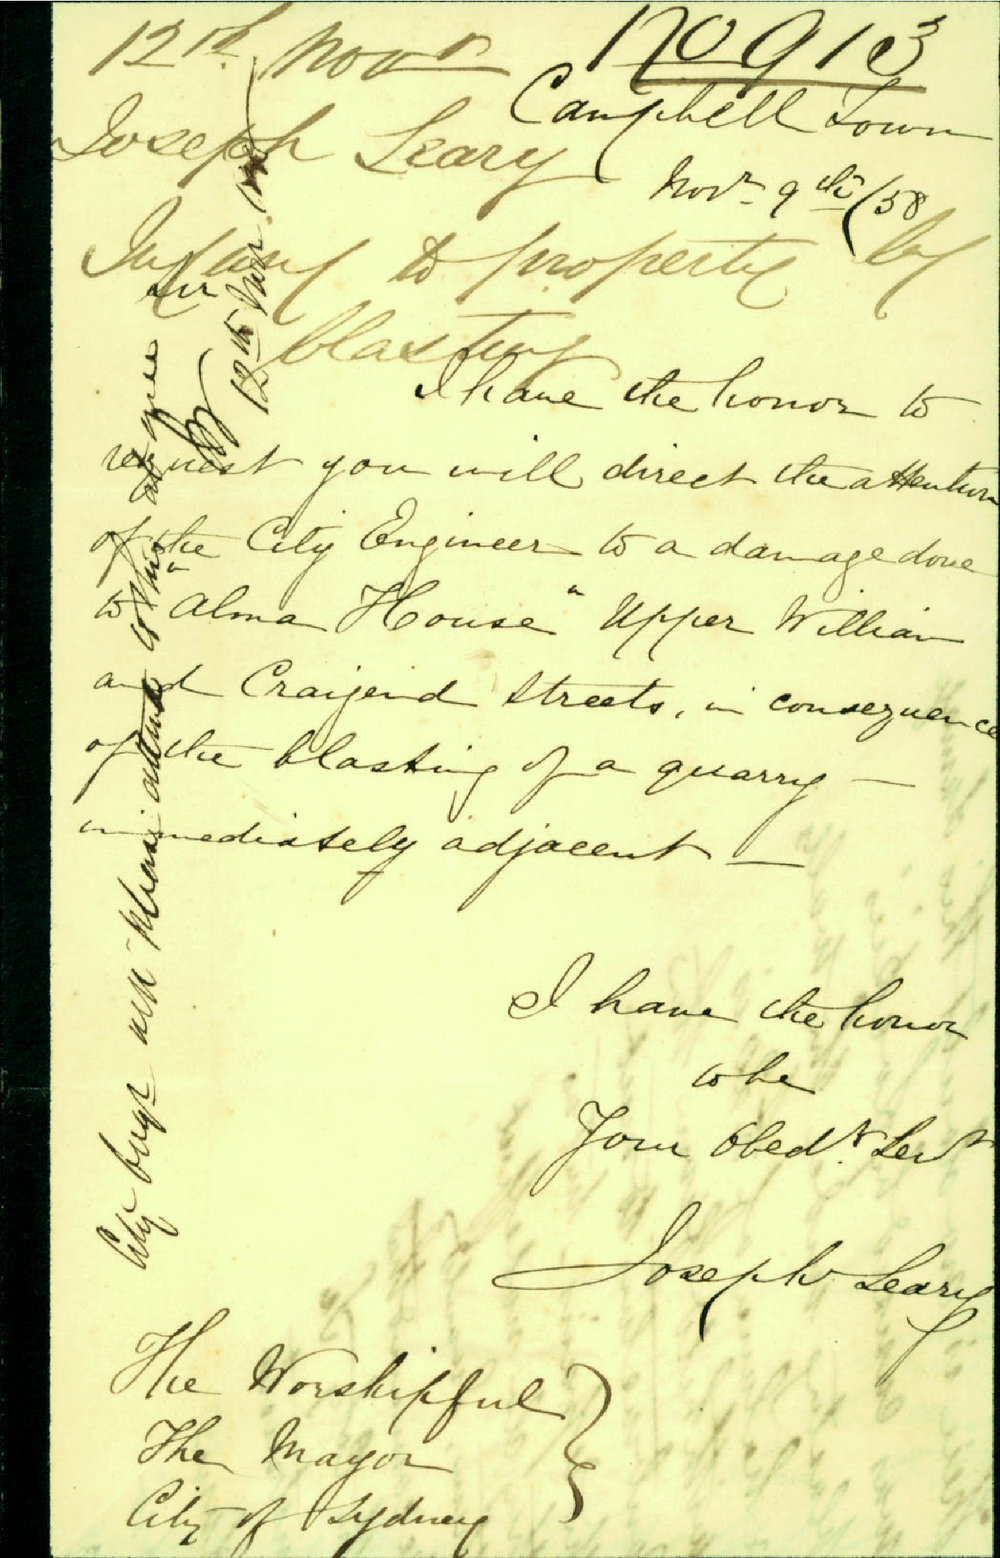 12th. Novr
No 913
Campbell Town
Joseph Leary
Novr. 9th/58
Injury to property by
blasting
Sir
I have the honor to
request you will direct the attention
of the City Engineer to a damage done
to "Alma House" Upper William
and Craigend Streets, in consequence
of the blasting of a quarry —
immediately adjacent —
I have the honor
to be
Your Obedt. Servt
Joseph Leary
The Worshipful
The Mayor
City of Sydney
City Engr will please attend to this at once
12th Novr.